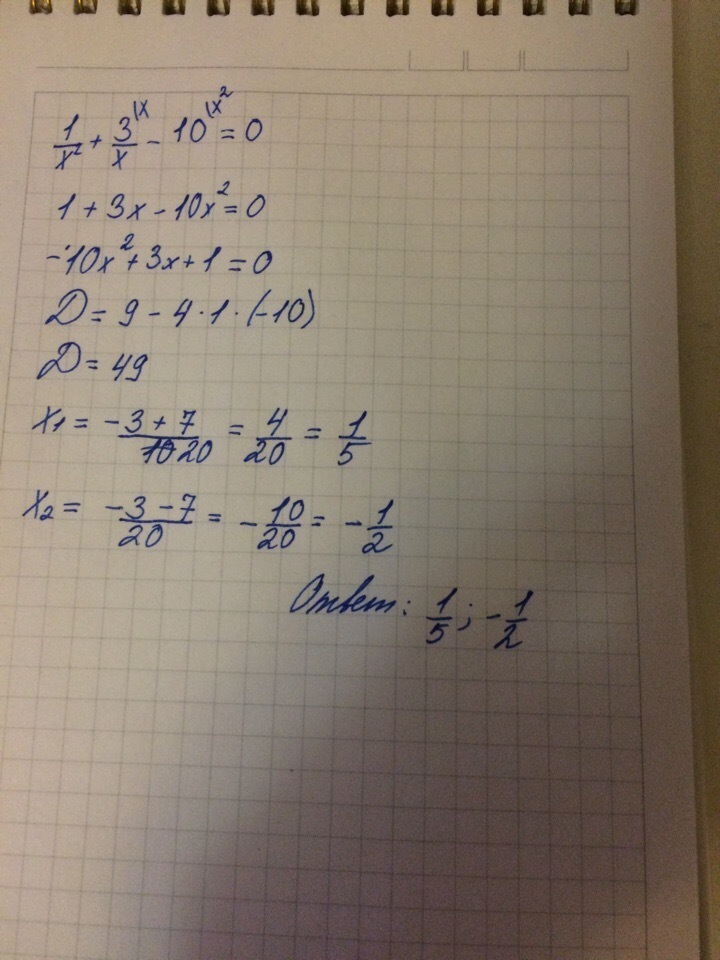 1/x² + 3/x^(\x - 10^(\x² = 0
1 + 3x - 10x² = 0
-10x² + 3x + 1 = 0
D = 9 - 4 · 1 · (-10)
D = 49
x₁ = -3 + 7 / 20 = 4/20 = 1/5
x₂ = -3 - 7 / 20 = -10/20 = -1/2
Ответ: 1/5; -1/2